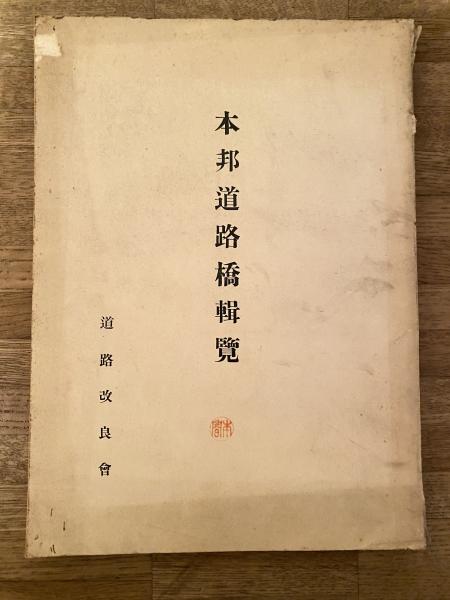 本邦道路橋輯覽
道路改良會